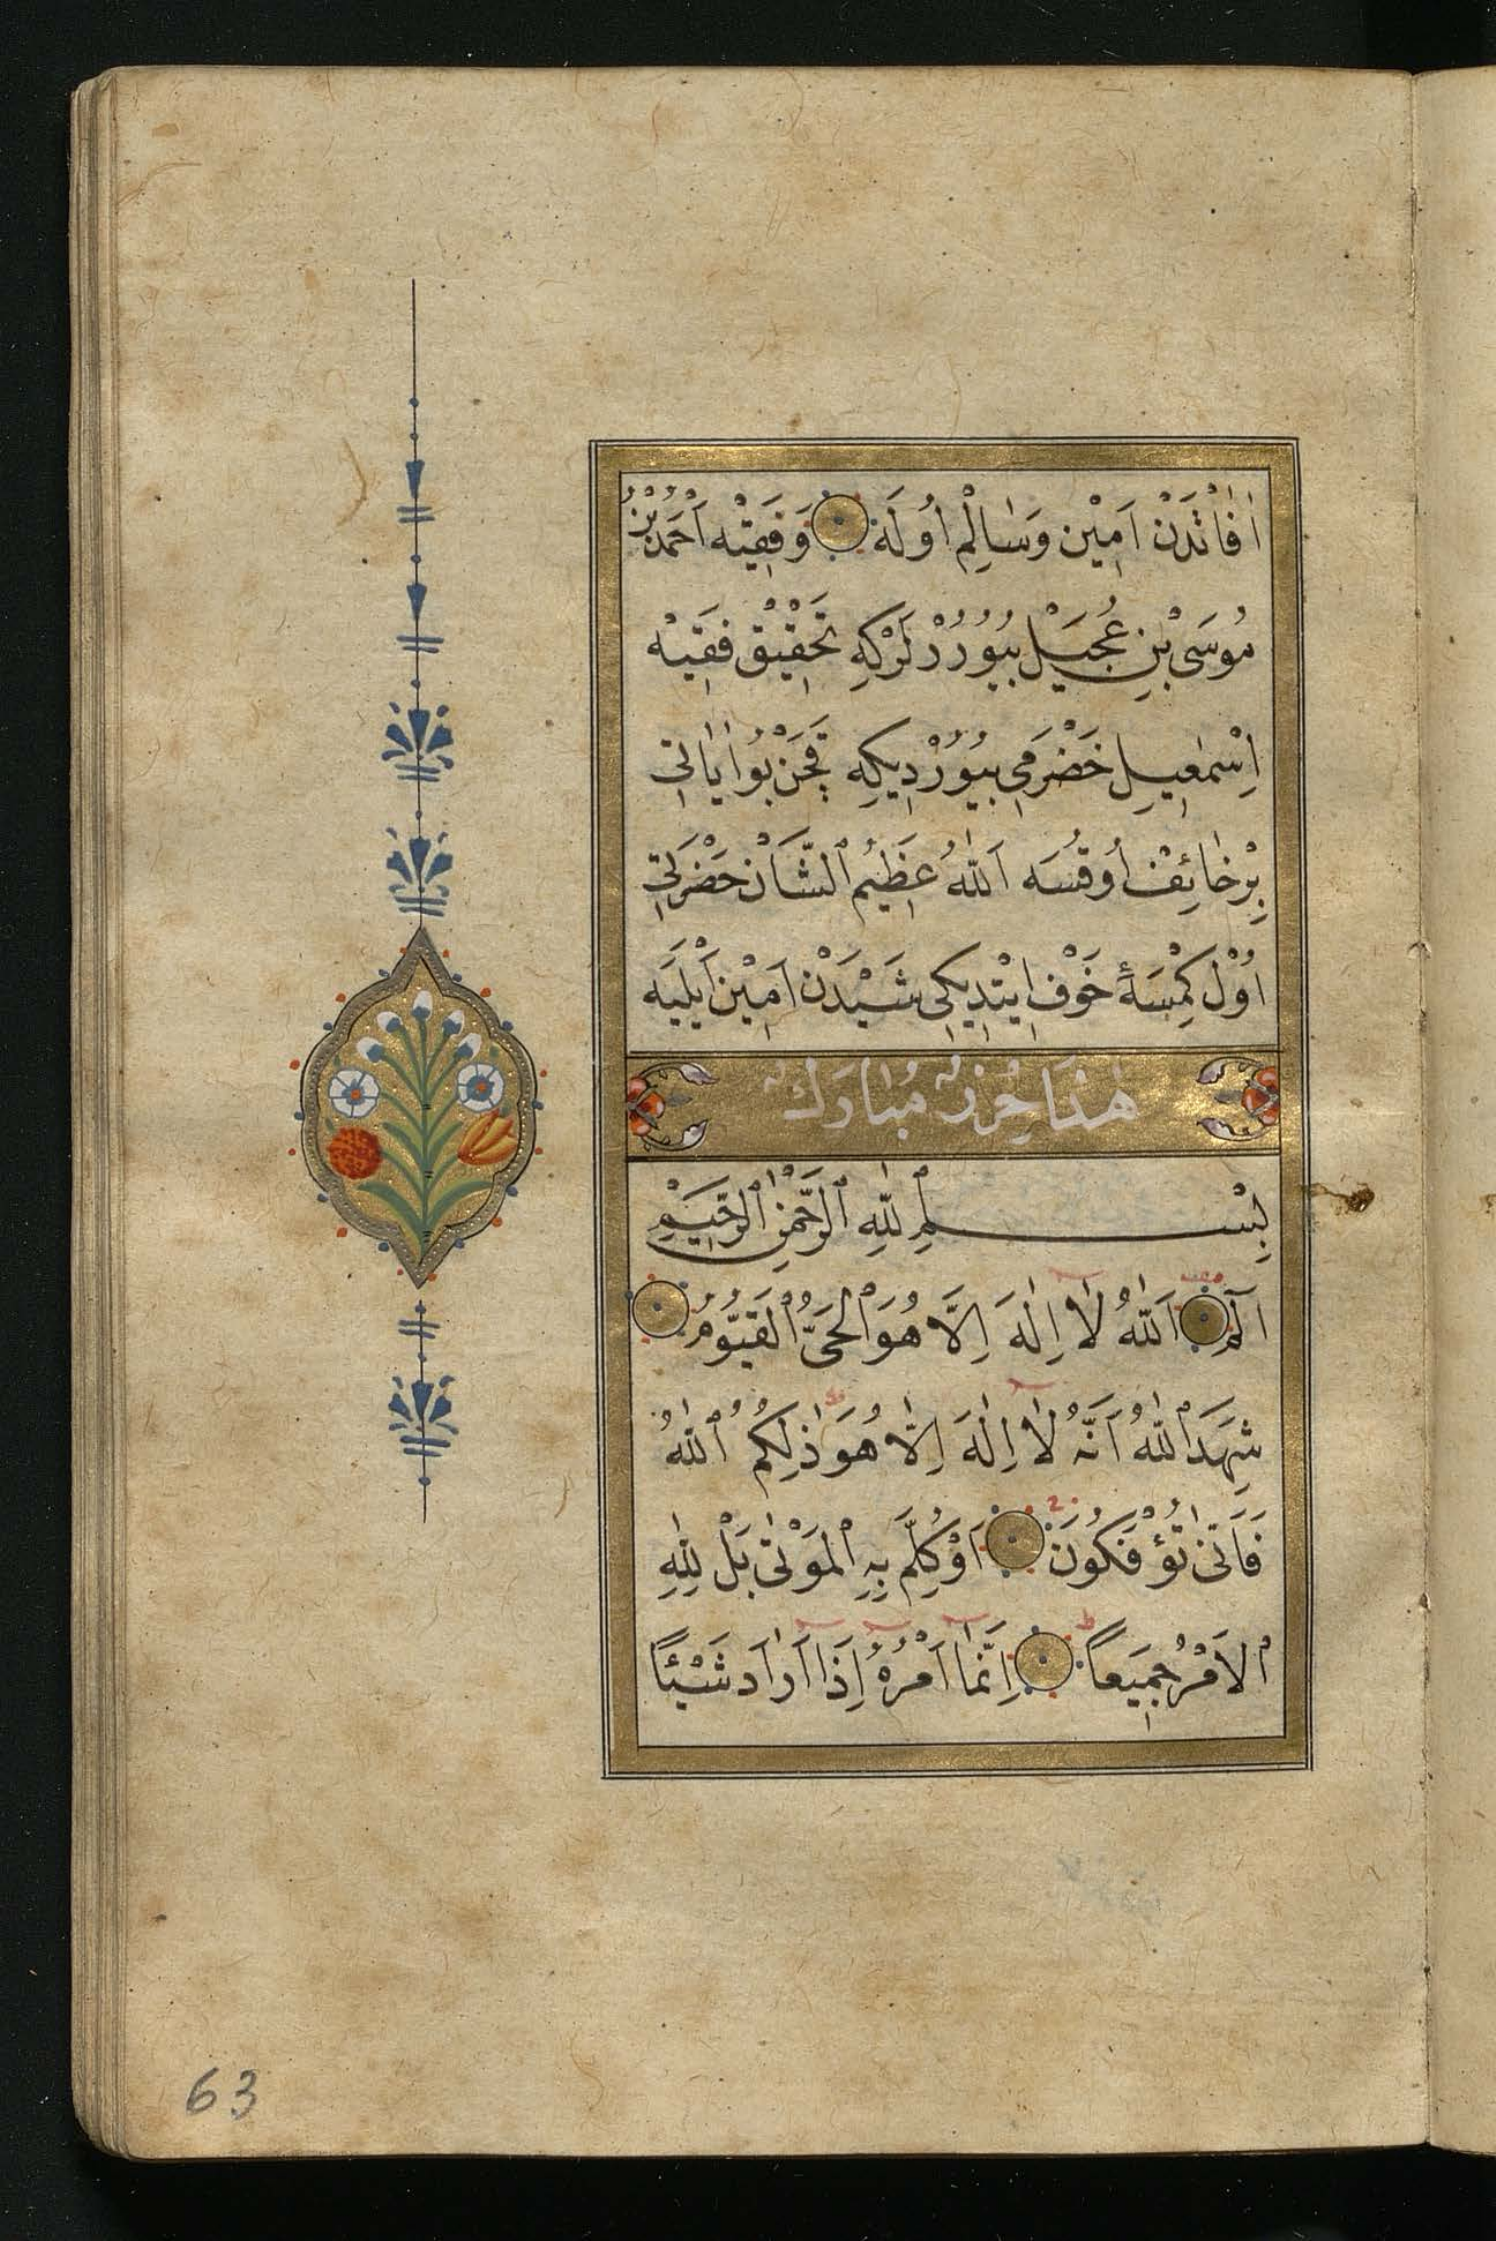 اٰفَاتْدَنْ اَمِيْن وَسَالِمْ اُولَه وَفَقِيْه اَحْمَدْ بْنُ
مُوسَى بْنِ عُجَيْل بُيُورُرْلَرْكِه تَحْقِيْقْ فَقِيْه
اِسْمٰعِيل حَضْرَمِى بُيُورْدِيكِه قَچَنْ بُو اٰيَاتِى
بِرْ خَائِفْ اُوقُسَه اَللّٰهُ عَظِيمُ ٱلشَّاَنْ حَضْرَتِى
اُوْل كِمْسَهٔ خَوْف اِيتْدِيكِى شَيْدَنْ اَمِيْن اَيْلَيَه
هٰذَا حِرْزٌ مُبَارَكٌ
بِسْمِ ٱللّٰهِ ٱلرَّحْمٰنِ ٱلرَّحِيْمِ
الٓمٓ اَللّٰهُ لَا اِلٰهَ اِلَّا هُوَ ٱلْحَىُّ ٱلْقَيُّومُ
شَهِدَ ٱللّٰهُ اَنَّهُ لَا اِلٰهَ اِلَّا هُوَ ذٰلِكُمُ ٱللّٰهُ
فَاَنّٰى تُؤْفَكُونَ اَوْ كُلِّمَ بِهِ ٱلْمَوْتٰى بَلْ لِلّٰهِ
ٱلْاَمْرُ جَمِيعاً اِنَّمَا اَمْرُهُ اِذَا اَرَادَ شَيْئًا
63